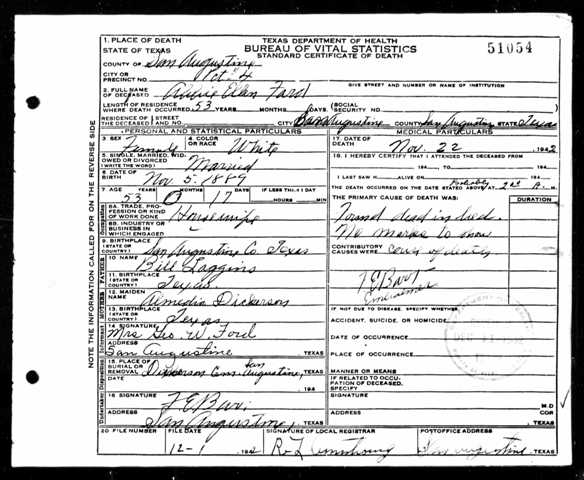 TEXAS DEPARTMENT OF HEALTH
BUREAU OF VITAL STATISTICS
STANDARD CERTIFICATE OF DEATH
51054
1. PLACE OF DEATH
STATE OF TEXAS
COUNTY OF San Augustine
CITY OR PRECINCT NO. Pct. 4
GIVE STREET AND NUMBER OR NAME OF INSTITUTION
2. FULL NAME OF DECEASED Ellen Ford
LENGTH OF RESIDENCE WHERE DEATH OCCURRED 53 YEARS MONTHS DAYS (SOCIAL SECURITY NO.
RESIDENCE OF THE DECEASED STREET AND NO. CITY San Augustine COUNTY San Augustine STATE Texas
PERSONAL AND STATISTICAL PARTICULARS
3 SEX Female
4 COLOR OR RACE White
5 SINGLE, MARRIED, WIDOWED OR DIVORCED (WRITE THE WORD) Married
6 DATE OF BIRTH Nov. 5. 1869
7 AGE YEARS MONTHS DAYS IF LESS THAN 1 DAY
53 0 17 HOURS MIN
8A. TRADE, PROFESSION OR KIND OF WORK DONE Housewife
8B. INDUSTRY OR BUSINESS IN WHICH ENGAGED
9. BIRTHPLACE (STATE OR COUNTRY) San Augustine Co. Texas
10. NAME Bill Loggins
11. BIRTHPLACE (STATE OR COUNTRY) Texas
12. MAIDEN NAME Almedia Dickerson
13. BIRTHPLACE (STATE OR COUNTRY) Texas
14. SIGNATURE Mrs Geo. W. Ford
ADDRESS San Augustine TEXAS
15. PLACE OF BURIAL OR REMOVAL Dickerson Cem. San Augustine, TEXAS
DATE 194
16 SIGNATURE
ADDRESS San Augustine, TEXAS
MEDICAL PARTICULARS
17. DATE OF DEATH Nov. 22 1942
18. I HEREBY CERTIFY THAT I ATTENDED THE DECEASED FROM
194 TO 194
I LAST SAW H ALIVE ON 194
THE DEATH OCCURRED ON THE DATE STATED ABOVE AT Probably 2 A M.
THE PRIMARY CAUSE OF DEATH WAS: DURATION
Found dead in bed.
No marks to show
CONTRIBUTORY CAUSES WERE cause of death
Embalmer
IF NOT DUE TO DISEASE, SPECIFY WHETHER:
ACCIDENT, SUICIDE, OR HOMICIDE
DATE OF OCCURRENCE
PLACE OF OCCURRENCE
MANNER OR MEANS
IF RELATED TO OCCUPATION OF DECEASED, SPECIFY
SIGNATURE M.D OR
ADDRESS TEXAS
20 FILE NUMBER
FILE DATE 12-1 1942
SIGNATURE OF LOCAL REGISTRAR R. L. Armstrong
POSTOFFICE ADDRESS San Augustine TEXAS
NOTE THE INFORMATION CALLED FOR ON THE REVERSE SIDE